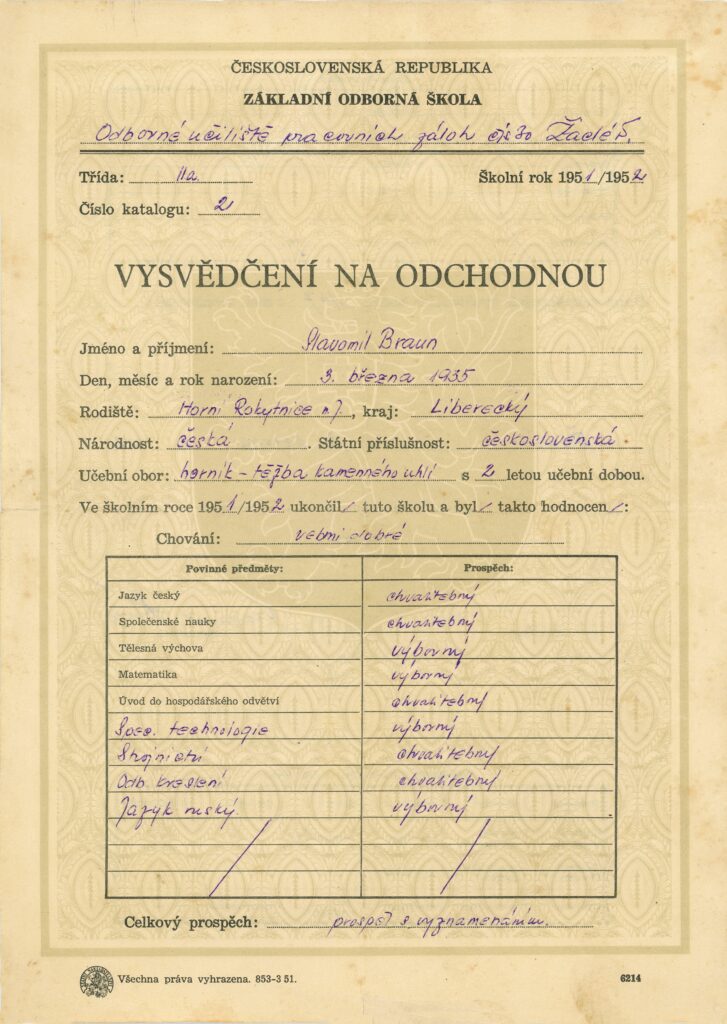 ČESKOSLOVENSKÁ REPUBLIKA
ZÁKLADNÍ ODBORNÁ ŠKOLA
Odborné učiliště pracovních záloh číslo Žacléř.
Třída: IIa. Školní rok 1951/1952
Číslo katalogu: 2
VYSVĚDČENÍ NA ODCHODNOU
Jméno a příjmení: Slavomil Braun
Den, měsíc a rok narození: 3. března 1935
Rodiště: Horní Rokytnice n J., kraj: Liberecký
Národnost: česká. Státní příslušnost: československá
Učební obor: horník – těžba kamenného uhlí s 2 letou učební dobou.
Ve školním roce 1951/1952 ukončil/ tuto školu a byl/ takto hodnocen/:
Chování: velmi dobré
Povinné předměty: Prospěch:
Jazyk český chvalitebný
Společenské nauky chvalitebný
Tělesná výchova výborný
Matematika výborný
Úvod do hospodářského odvětví chvalitebný
Spec. technologie výborný
Strojnictví chvalitebný
Odb. kreslení chvalitebný
Jazyk ruský výborný
Celkový prospěch: prospěl s vyznamenáním.
Všechna práva vyhrazena. 853-3 51. 6214